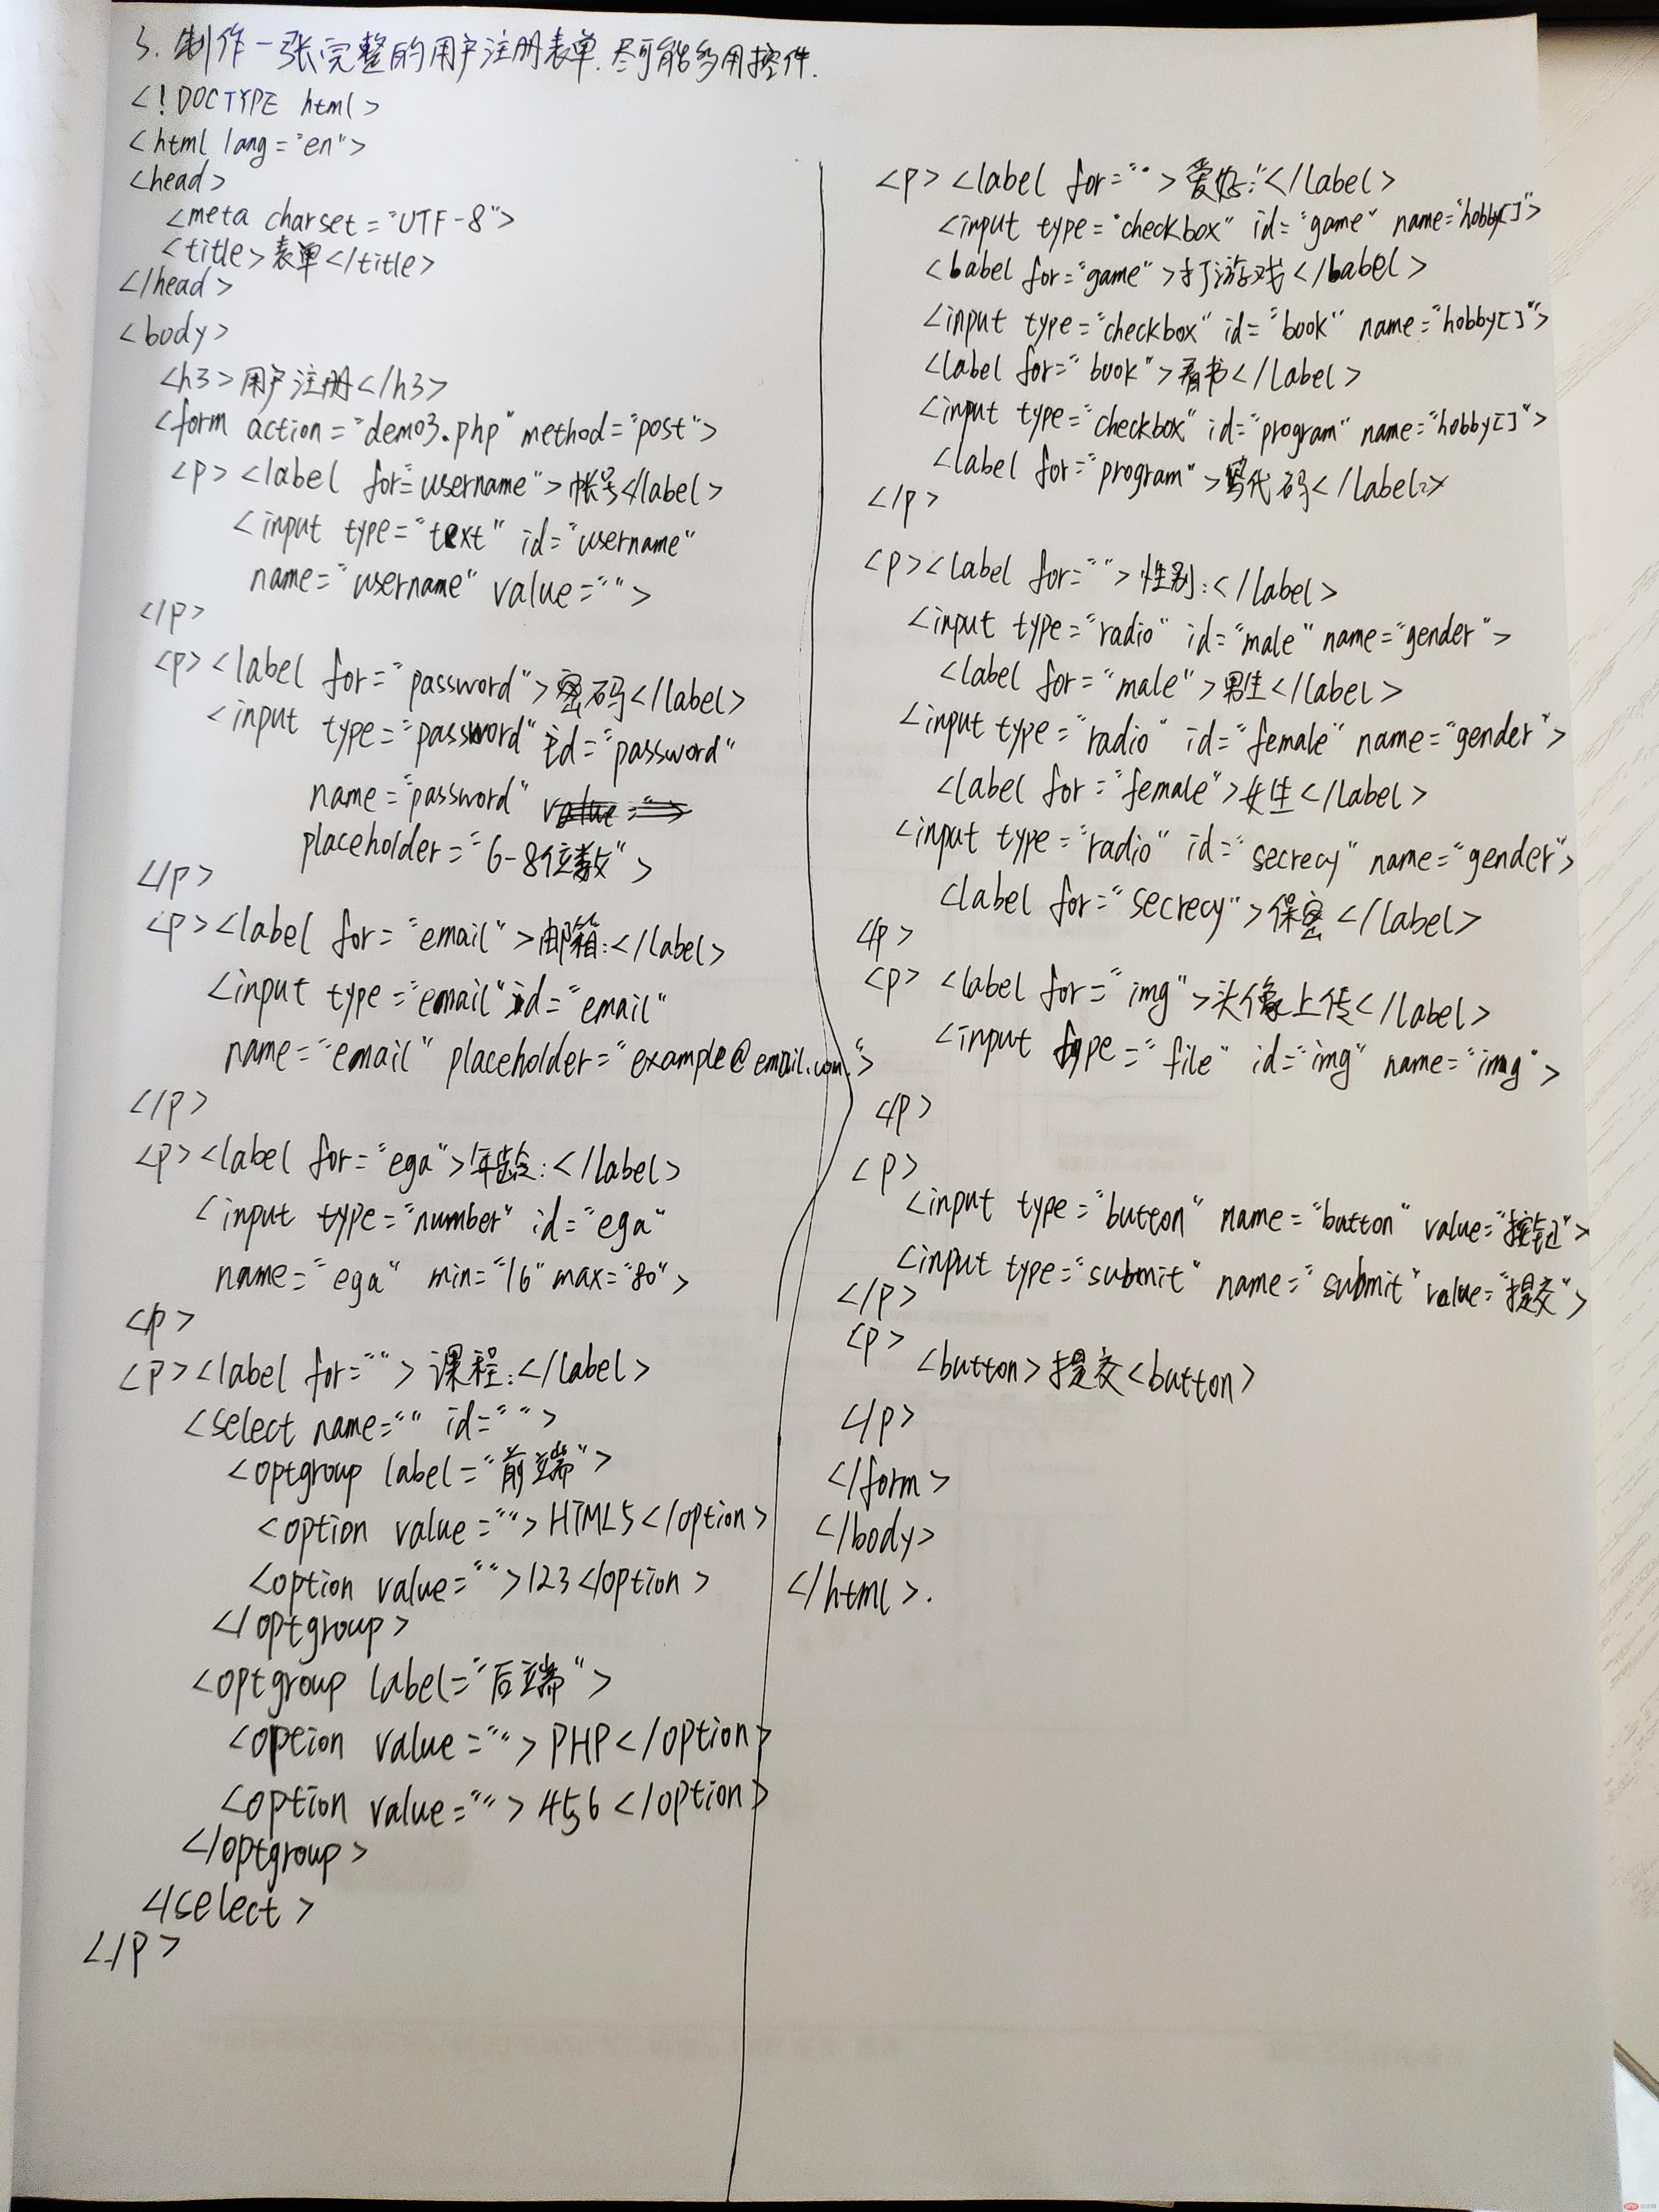 3. 制作一张完整的用户注册表单.尽可能多用控件.
<!DOCTYPE html>
<html lang="en">
<head>
<meta charset="UTF-8">
<title>表单</title>
</head>
<body>
<h3>用户注册</h3>
<form action="demo3.php" method="post">
<p><label for="username">帐号</label>
<input type="text" id="username"
name="username" value="">
</p>
<p><label for="password">密码</label>
<input type="password" id="password"
name="password"
placeholder="6-8位数">
</p>
<p><label for="email">邮箱:</label>
<input type="email" id="email"
name="email" placeholder="example@email.com.">
</p>
<p><label for="ega">年龄:</label>
<input type="number" id="ega"
name="ega" min="16" max="80">
</p>
<p><label for="">课程:</label>
<select name="" id="">
<optgroup label="前端">
<option value="">HTML5</option>
<option value="">123</option>
</optgroup>
<optgroup label="后端">
<option value="">PHP</option>
<option value="">456</option>
</optgroup>
</select>
</p>
<p><label for="">爱好:</label>
<input type="checkbox" id="game" name="hobby[]">
<babel for="game">打游戏</babel>
<input type="checkbox" id="book" name="hobby[]">
<label for="book">看书</label>
<input type="checkbox" id="program" name="hobby[]">
<label for="program">写代码</label>
</p>
<p><label for="">性别:</label>
<input type="radio" id="male" name="gender">
<label for="male">男生</label>
<input type="radio" id="female" name="gender">
<label for="female">女生</label>
<input type="radio" id="secrecy" name="gender">
<label for="secrecy">保密</label>
</p>
<p><label for="img">头像上传</label>
<input type="file" id="img" name="img">
</p>
<p>
<input type="button" name="button" value="按钮">
<input type="submit" name="submit" value="提交">
</p>
<p>
<button>提交<button>
</p>
</form>
</body>
</html>.